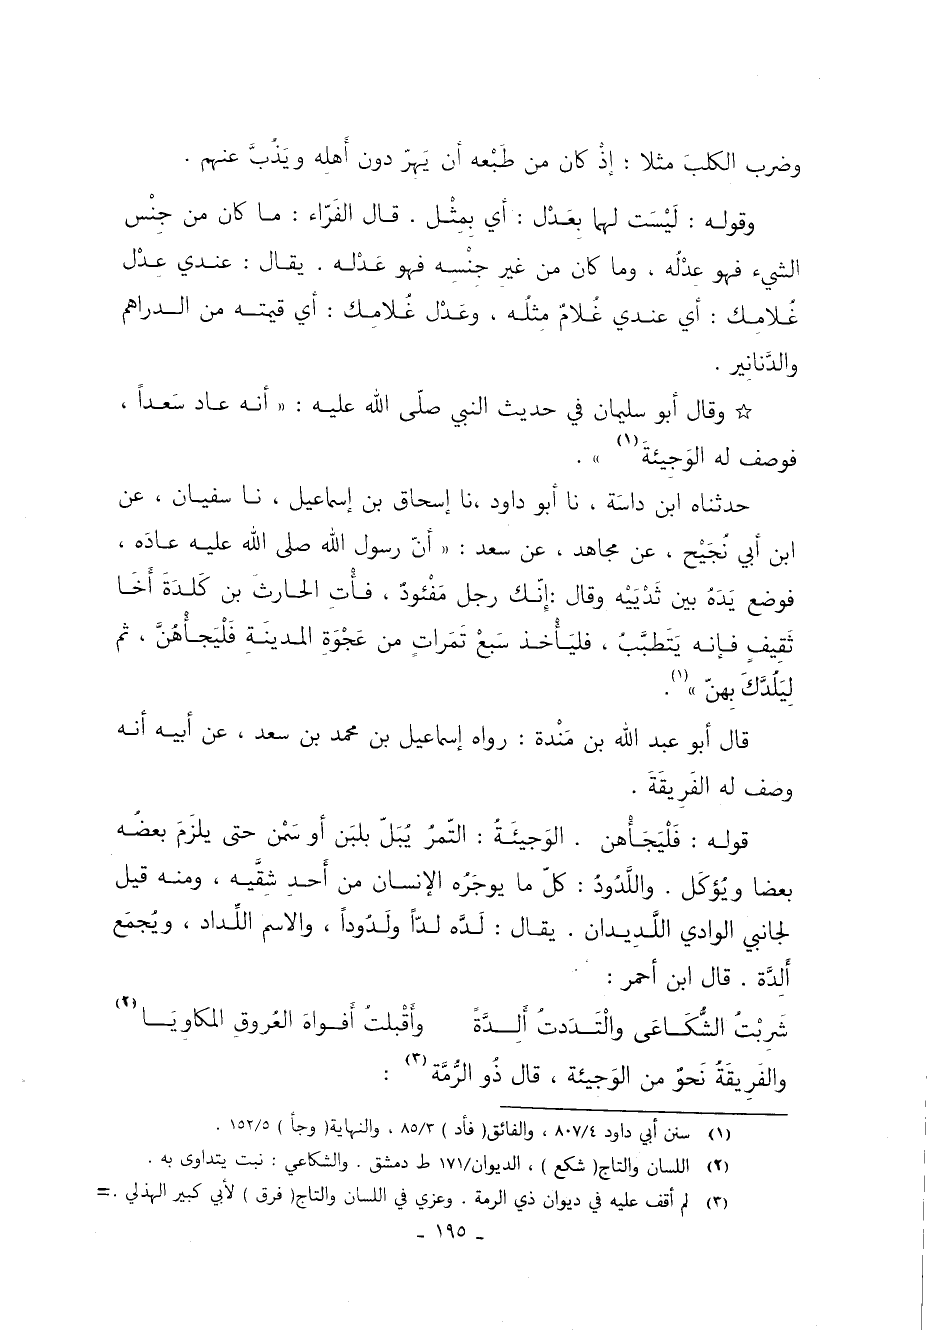 وضرب الكلبَ مثلا : إذْ كان من طَبْعه أن يَهِرّ دون أَهله ويَذُبَّ عنهم .
وقوله : لَيْسَت لها بعَدْل : أي بمِثْل . قال الفَرّاء : ما كان من جنْس
الشيء فهو عِدْلُه ، وما كان من غير جنْسه فهو عَدْله . يقال : عندي عِدْل
غُلامك : أي عندي غُلامٌ مثلُه ، وعَدْل غُلامك : أي قيمته من الدراهم
والدَّنانير .
☆ وقال أبو سليمان في حديث النبي صلّى الله عليه : « أنه عاد سَعداً ،
فوصف له الوَجِيئَةَ (١) » .
حدثناه ابن داسَة ، نا أبو داود ،نا إسحاق بن إسماعيل ، نا سفيان ، عن
ابن أبي نُجَيْح ، عن مجاهد ، عن سعد : « أنّ رسول الله صلى الله عليه عادَه ،
فوضع يَدَهُ بين ثَدْيَيْه وقال :إنّك رجل مَفْئودٌ ، فأْتِ الحارثَ بن كَلَدَةَ أَخَا
ثَقِيفٍ فإنه يَتَطبَّبُ ، فليَأْخذ سَبْعَ تَمَراتٍ من عَجْوَةِ المدينَةِ فَلْيَجأْهُنَّ ، ثم
لِيَلُدَّكَ بهنّ »(١).
قال أبو عبد الله بن مَنْدة : رواه إسماعيل بن محمد بن سعد ، عن أبيه أنه
وصف له الفَرِيقَةَ .
قوله : فَلْيَجَأْهن . الوَجيئَةُ : التّمرُ يُبَلّ بلبَن أو سَمْن حتى يلزَمَ بعضُه
بعضا ويُؤكل . واللَّدُودُ : كلّ ما يوجَرُه الإنسان من أَحد شقَّيه ، ومنه قيل
لجانبي الوادي اللَّديدان . يقال : لَدَّه لدّاً ولَدُوداً ، والاسم اللَّداد ، ويُجمَع
أَلدَّة . قال ابن أحمر :
شَربْتُ الشُّكَاعَى والْتَدَدتُ أَلِدَّةً وأَقْبلتُ أَفواهَ العُروقِ المكاويَا (٢)
والفَرِيقَةُ نَحوٌ من الوَجيئة ، قال ذُو الرُّمَّة (٣) :
(١) سنن أبي داود ٨٠٧/٤ ، والفائق( فأد ) ٨٥/٣ ، والنهاية( وجأ ) ١٥٢/٥ .
(٢) اللسان والتاج( شكع ) ، الديوان/١٧١ ط دمشق . والشكاعي : نبت يتداوى به .
(٣) لم أقف عليه في ديوان ذي الرمة . وعزي في اللسان والتاج( فرق ) لأبي كبير الهذلي .=
- ١٩٥ -